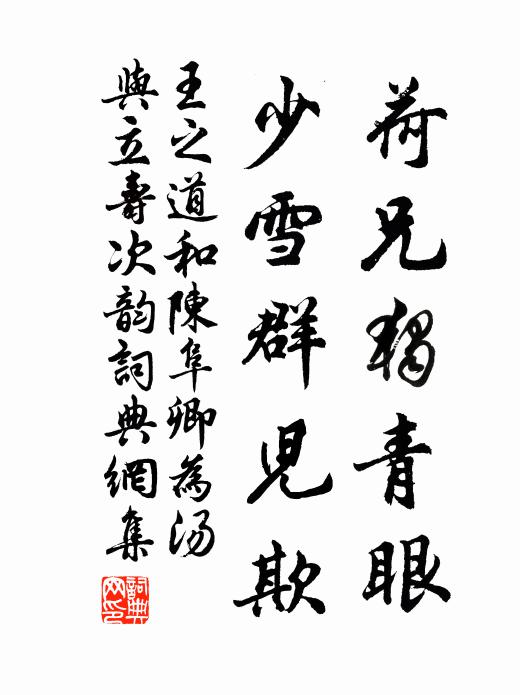 荷兄獨青眼
少雪群兒欺
王之道和陳阜卿為湯
與立壽次韵詞典網集
詞典網印